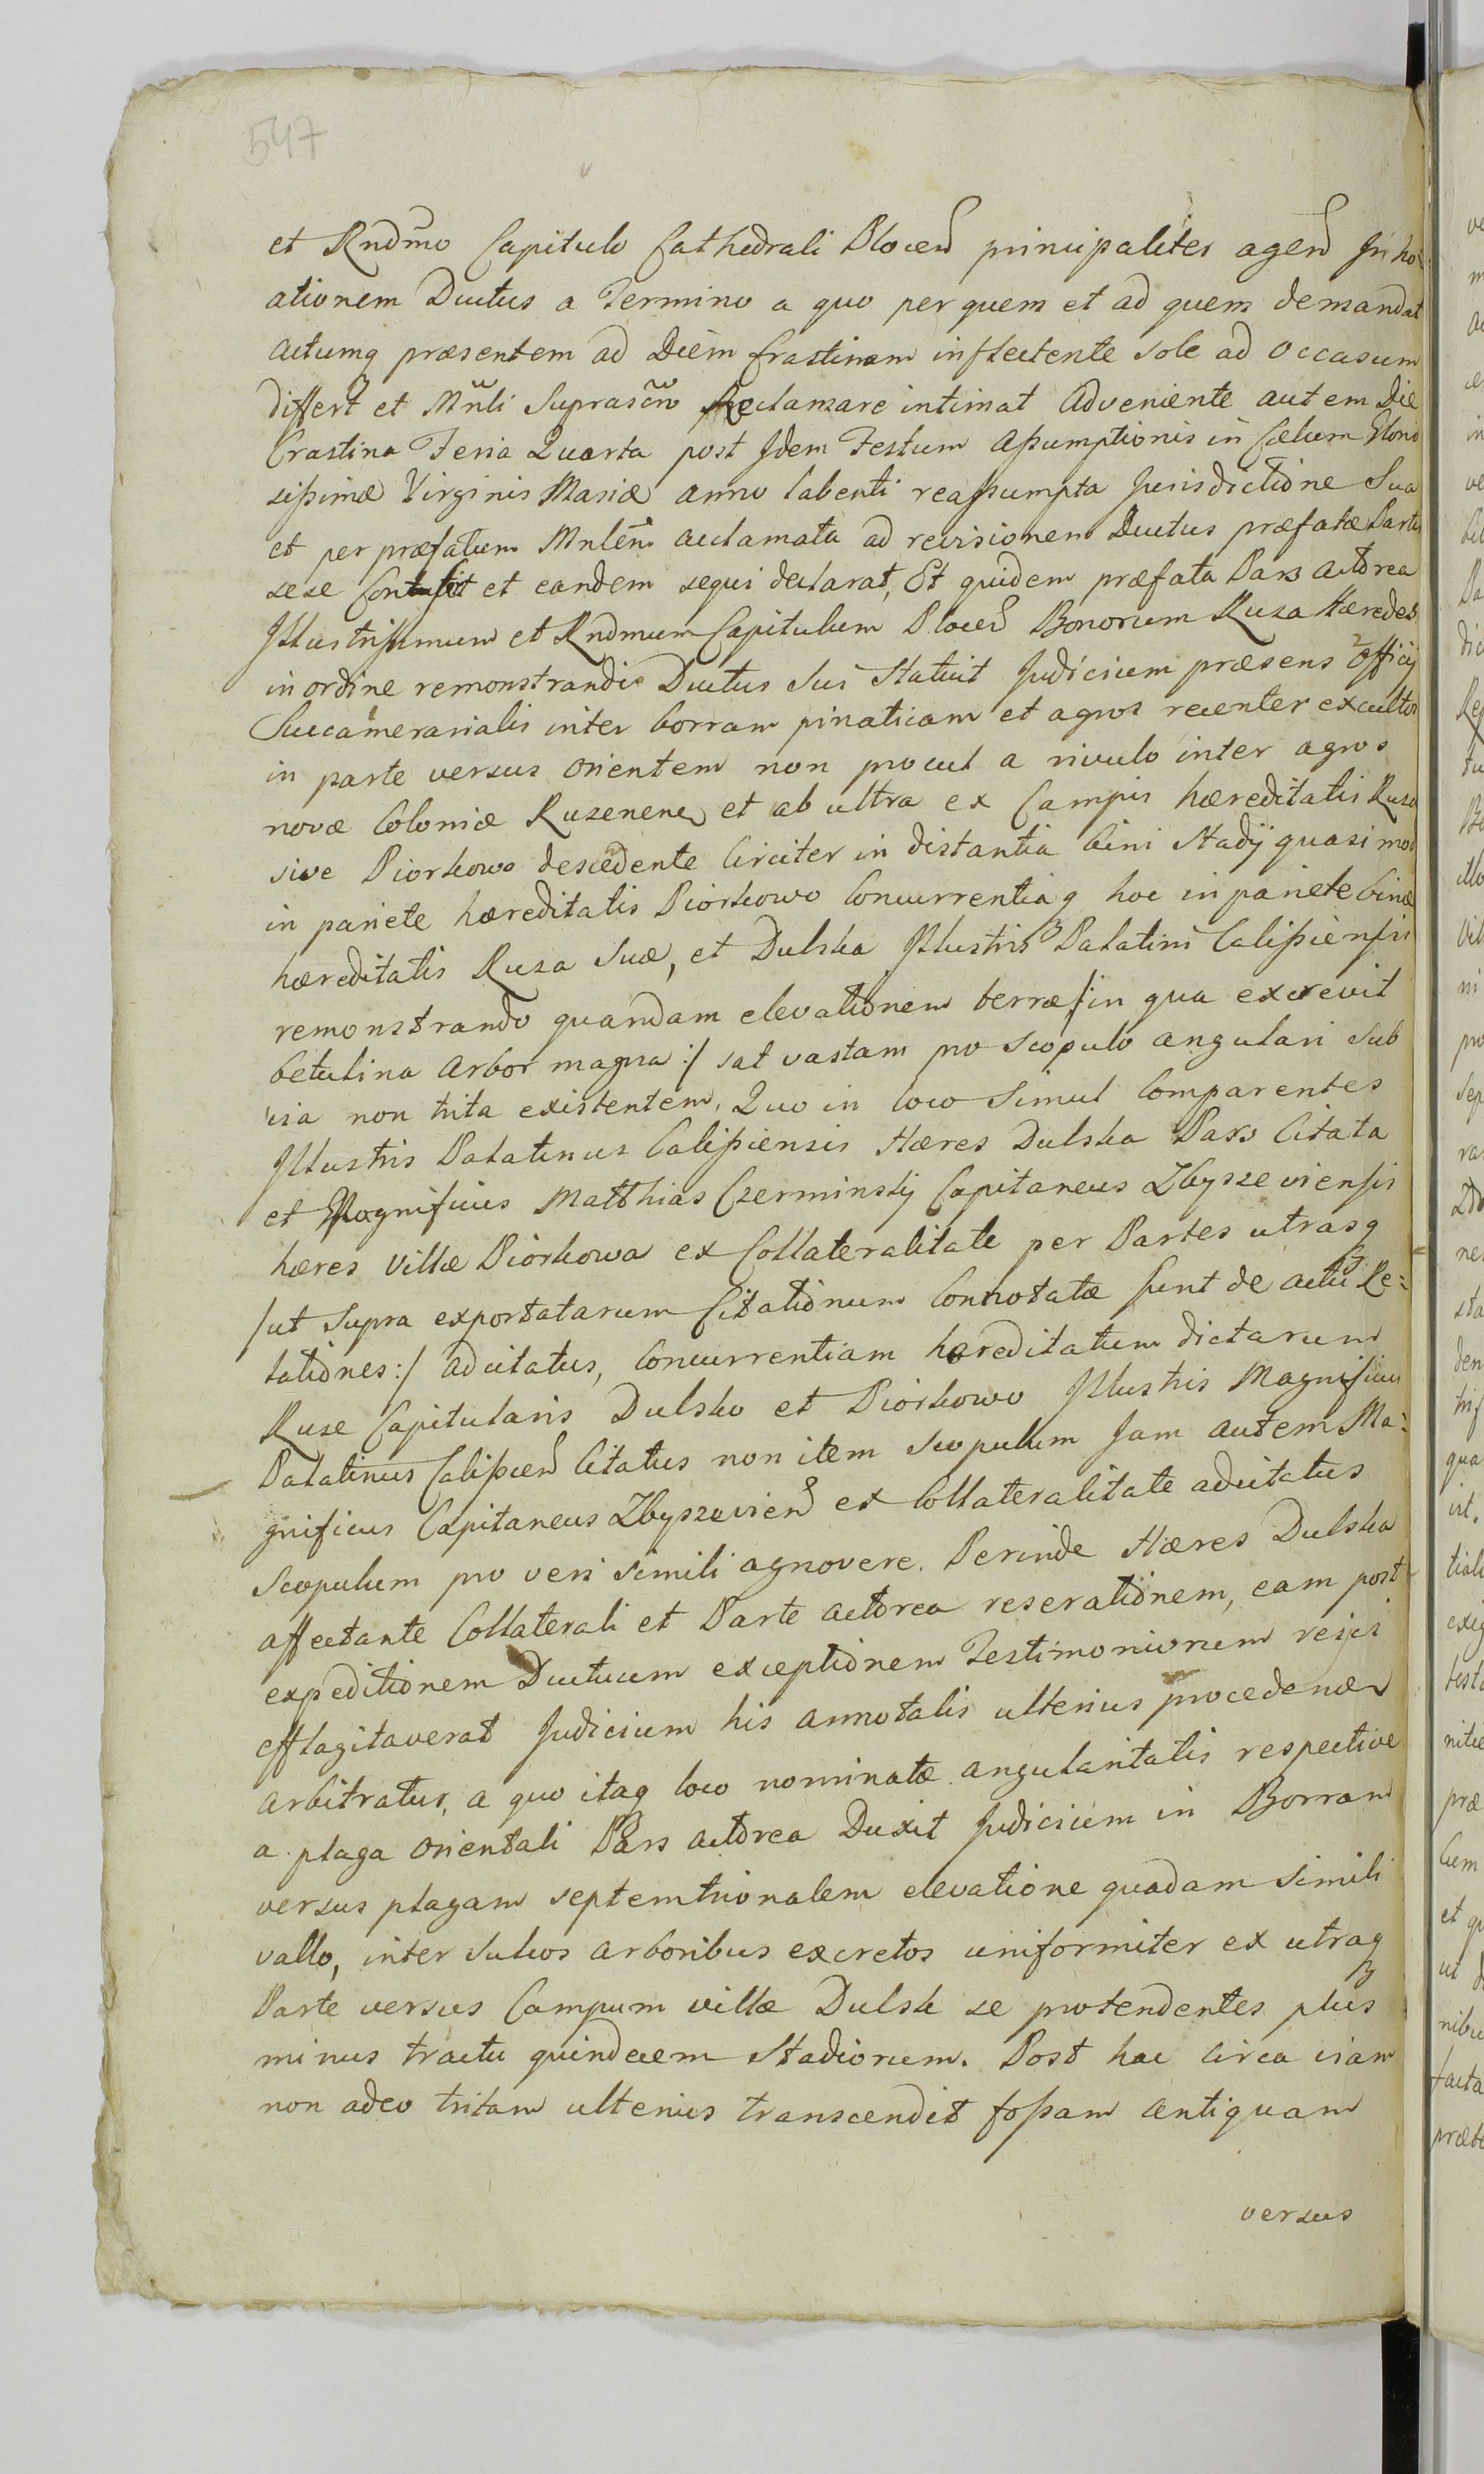 547
et Rndmo Capitulo Cathedrali Plocen principaliter agen In ho
ationem Ductus a Termino a quo per quem et ad quem demandat
actumq præsentem ad Diem Crastinam inflectente sole ad occasum
differt et Mnli Suprascto acclamare intimat adveniente autem Die
Crastina Feria Quarta post Idem Festum Assumptionis in Cælum Glorio
sissimæ Virginis Mariæ anno labenti reassumpta Jurisdictione Sua
et per præfatum Mnlem acclamata ad revisionem Ductus præfatæ Partis
sese Contulit et eandem sequi declarat, Et quidem præfata Pars actorea
Illustrissimum et Rndmum Capitulum Plocen Bonorum Ruza Hæredes
in ordine remonstrandi Ductus Sui Statuit Judicium præsens Officij
Succamerarialis inter borram pinaticam et agros recenter excultos
in parte versus orientem non procul a rivulo inter agros
novæ Coloniæ Ruzenen et ab ultra ex Campis hæreditatis Ruza
sive Piorkowo descedente Circiter in distantia bini Stadij quasi mod
in pariete hæreditatis Piorkowo Concurrentiaq hoc in pariete binæ
hæreditatis Ruza Suæ, et Dulska Illustris Palatini Calissiensis
remonstrando quandam elevationem terræ /in qua excrevit
betulina Arbor magna:/ sat vastam pro Scopulo angulari sub
via non trita existentem, Quo in loco Simul Comparentes
Illustris Palatinus Calissiensis Hæres Dulska Pars Citata
et Magnificus Matthias Czerminskij Capitaneus Zbyszeviensis
hæres Villæ Piorkowa ex Collateralitate per Partes utrasq
/ut Supra exportatarum Citationum Connotatæ sunt de actu Re:
lationes:/ adcitatus, Concurrentiam hæreditatum dictarum
Ruze Capitularis Dulsko et Piorkowo Illustris Magnificus
Palatinus Calissien Citatus non item Scopulum Jam autem Ma:
gnificus Capitaneus Zbyszevien ex Collateralitate adcitatus
Scopulum pro veri simili agnovere. Perinde Hæres Dulska
affectante Collaterali et Parte actorea reserationem, eam post
expeditionem Ductuum exceptionem Testimoniorum rejici
efflagitaverat Judicium his annotatis ulterius procedenda
arbitratus, a quo itaq loco nominatæ angularitatis respective
a plaga orientali Pars actorea Duxit Judicium in Borram
versus plagam septemtrionalem elevatione quadam simili
vallo, inter Sulcos arboribus excretos uniformiter ex utraq
Parte versus Campum villæ Dulsk se protendentes plus
minus tractu quindecem Stadiorum. Post hac circa viam
non adeo tritam ulterius transcendit fossam antiquam
versus